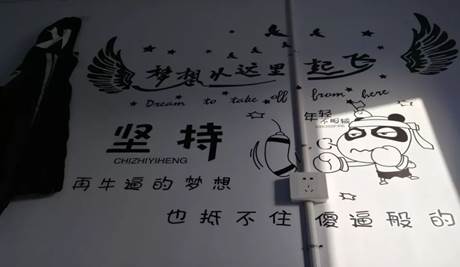 梦想从这里起飞
Dream to take off from here
年轻
不服输
坚持
CHIZHIYIHENG
再牛逼的梦想
也抵不住傻逼般的